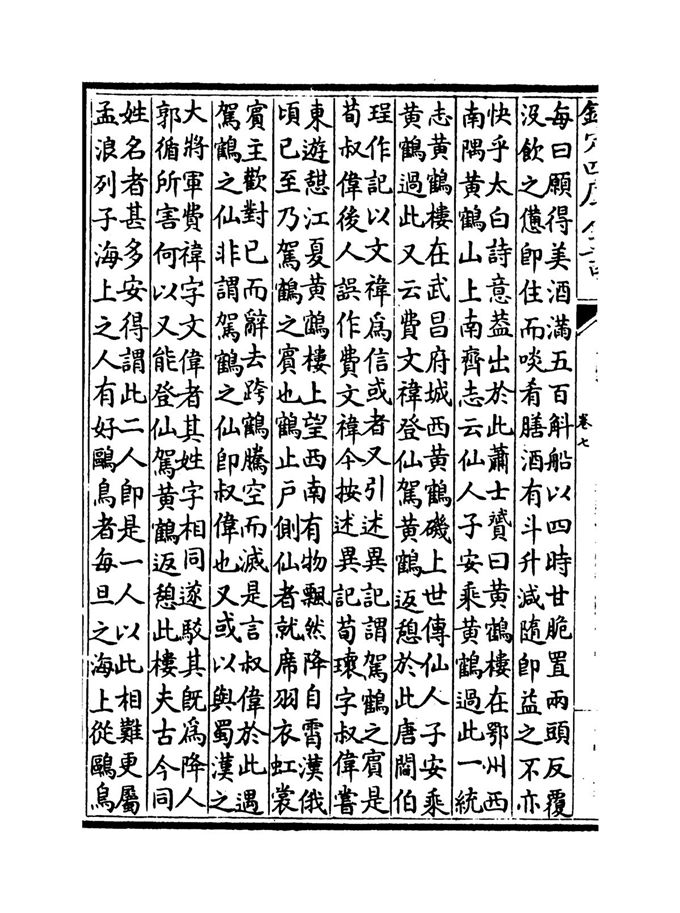 欽定四庫全書
卷七
每曰願得美酒滿五百斛船以四時甘脆置兩頭反覆
沒飲之憊即住而啖肴膳酒有斗升減隨即益之不亦
快乎太白詩意葢出於此蕭士贇曰黄鶴樓在鄂州西
南隅黄鶴山上南齊志云仙人子安乘黄鶴過此一統
志黄鶴樓在武昌府城西黄鶴磯上世傳仙人子安乘
黄鶴過此又云費文禕登仙駕黄鶴返憩於此唐閻伯
珵作記以文禕為信或者又引述異記謂駕鶴之賓是
荀叔偉後人誤作費文禕今按述異記荀瓌字叔偉嘗
東遊憇江夏黄鶴樓上望西南有物飄然降自霄漢俄
頃已至乃駕鶴之賓也鶴止户側仙者就席羽衣虹裳
賓主歡對已而辭去跨鶴騰空而滅是言叔偉於此遇
駕鶴之仙非謂駕鶴之仙即叔偉也又或以與蜀漢之
大將軍費禕字文偉者其姓字相同遂駁其既為降人
郭循所害何以又能登仙駕黄鶴返憩此樓夫古今同
姓名者甚多安得謂此二人即是一人以此相難更屬
孟浪列子海上之人有好鷗鳥者每旦之海上從鷗鳥